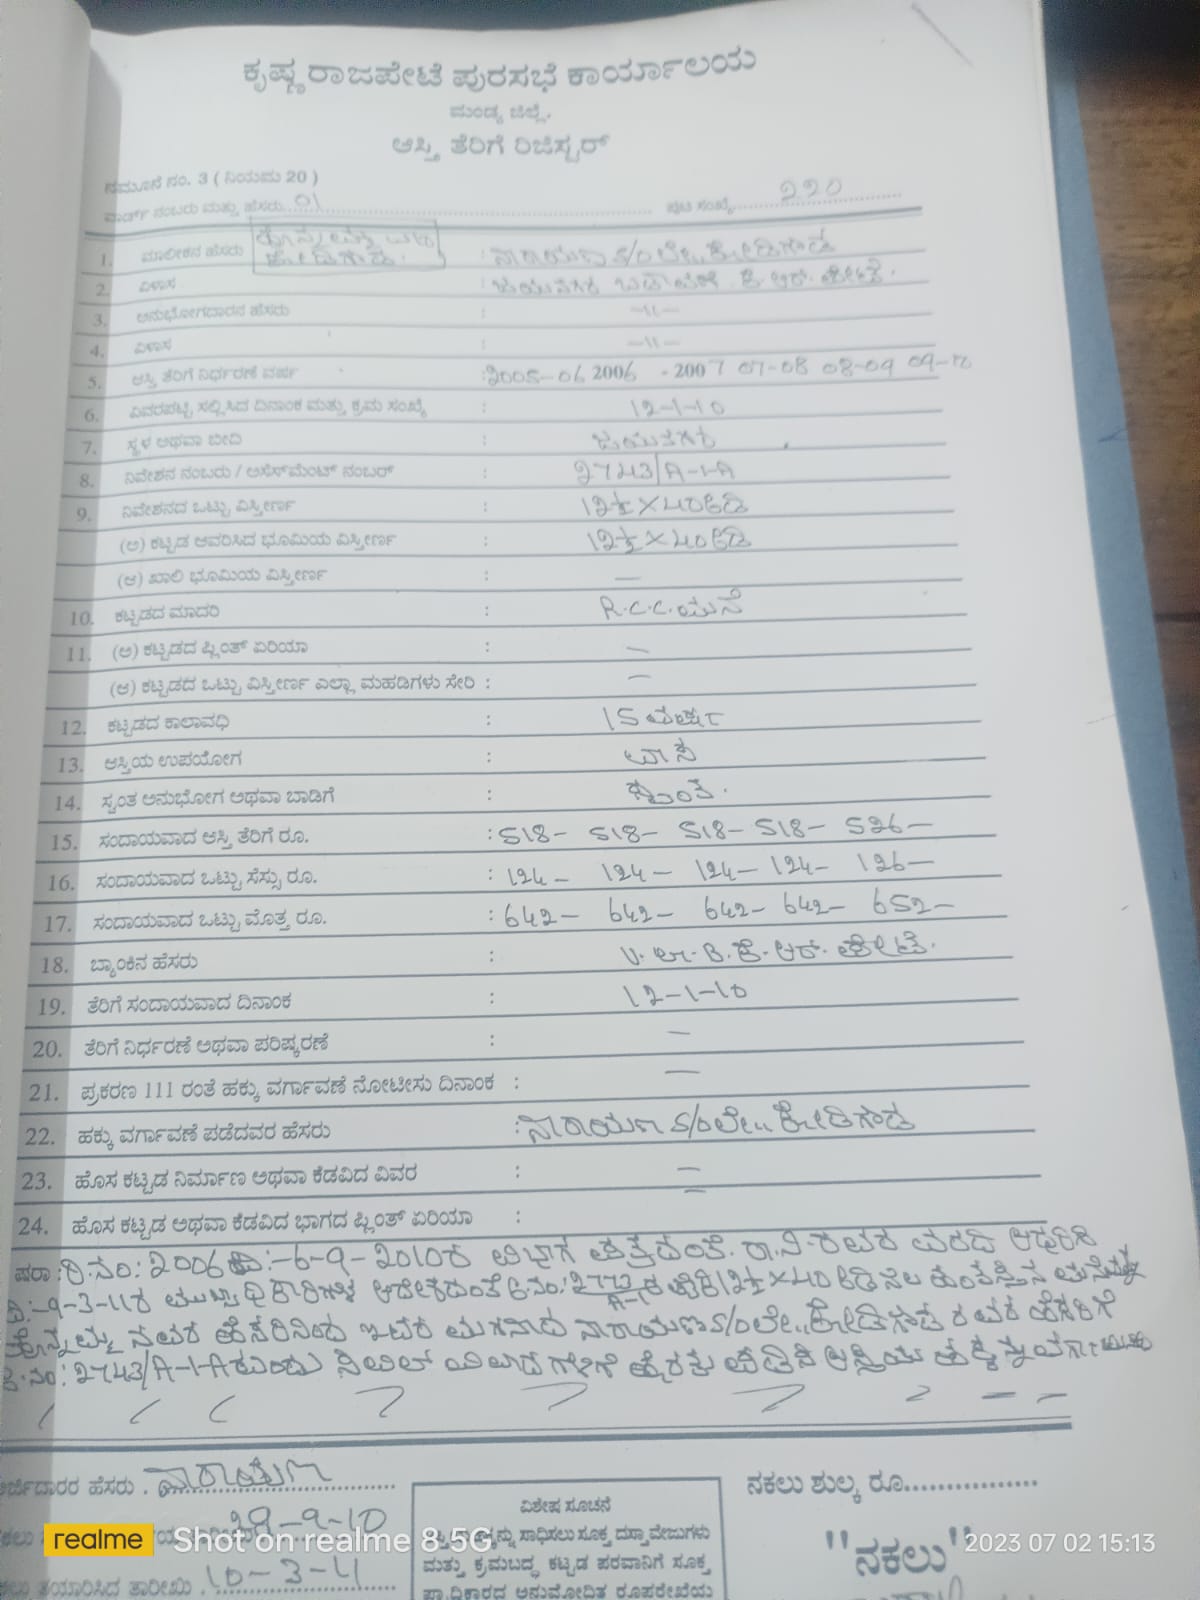 ಕೃಷ್ಣರಾಜಪೇಟೆ ಪುರಸಭೆ ಕಾರ್ಯಾಲಯ
ಮಂಡ್ಯ ಜಿಲ್ಲೆ.
ಆಸ್ತಿ ತೆರಿಗೆ ರಿಜಿಸ್ಟರ್
ನಮೂನೆ ನಂ. 3 ( ನಿಯಮ 20 )
ವಾರ್ಡ್ ನಂಬರು ಮತ್ತು ಹೆಸರು 01 ಪುಟ ಸಂಖ್ಯೆ 220
1. ಮಾಲೀಕನ ಹೆಸರು : ನಾರಾಯಣ S/o ಲೇ.. ಕೋಡಿಗೌಡ
2. ವಿಳಾಸ : ಜಯನಗರ ಬಡಾವಣೆ ಕೆ. ಆರ್. ಪೇಟೆ.
3. ಅನುಭೋಗದಾರನ ಹೆಸರು : -11-
4. ವಿಳಾಸ : -11-
5. ಆಸ್ತಿ ತೆರಿಗೆ ನಿರ್ಧರಣೆ ವರ್ಷ : 2005-06 2006 - 2007 07-08 08-09 09-10
6. ವಿವರಪಟ್ಟಿ ಸಲ್ಲಿಸಿದ ದಿನಾಂಕ ಮತ್ತು ಕ್ರಮ ಸಂಖ್ಯೆ : 12-1-10
7. ಸ್ಥಳ ಅಥವಾ ಬೀದಿ : ಜಯನಗರ
8. ನಿವೇಶನ ನಂಬರು / ಅಸೆಸ್‌ಮೆಂಟ್ ನಂಬರ್ : 2743/A-1-A
9. ನಿವೇಶನದ ಒಟ್ಟು ವಿಸ್ತೀರ್ಣ : 12½ X 40 ಅಡಿ
(ಅ) ಕಟ್ಟಡ ಆವರಿಸಿದ ಭೂಮಿಯ ವಿಸ್ತೀರ್ಣ : 12½ X 40 ಅಡಿ
(ಆ) ಖಾಲಿ ಭೂಮಿಯ ವಿಸ್ತೀರ್ಣ : —
10. ಕಟ್ಟಡದ ಮಾದರಿ : R.C.C. ಮನೆ
11. (ಅ) ಕಟ್ಟಡದ ಪ್ಲಿಂತ್ ಏರಿಯಾ : —
(ಆ) ಕಟ್ಟಡದ ಒಟ್ಟು ವಿಸ್ತೀರ್ಣ ಎಲ್ಲಾ ಮಹಡಿಗಳು ಸೇರಿ : —
12. ಕಟ್ಟಡದ ಕಾಲಾವಧಿ : 15 ವರ್ಷ
13. ಆಸ್ತಿಯ ಉಪಯೋಗ : ವಾಸ
14. ಸ್ವಂತ ಅನುಭೋಗ ಅಥವಾ ಬಾಡಿಗೆ : ಸ್ವಂತ.
15. ಸಂದಾಯವಾದ ಆಸ್ತಿ ತೆರಿಗೆ ರೂ. : 518- 518- 518- 518- 526-
16. ಸಂದಾಯವಾದ ಒಟ್ಟು ಸೆಸ್ಸು ರೂ. : 124- 124- 124- 124- 126-
17. ಸಂದಾಯವಾದ ಒಟ್ಟು ಮೊತ್ತ ರೂ. : 642- 642- 642- 642- 652-
18. ಬ್ಯಾಂಕಿನ ಹೆಸರು : ಕೆ. ಆರ್. ಪೇಟೆ.
19. ತೆರಿಗೆ ಸಂದಾಯವಾದ ದಿನಾಂಕ : 12-1-10
20. ತೆರಿಗೆ ನಿರ್ಧರಣೆ ಅಥವಾ ಪರಿಷ್ಕರಣೆ : —
21. ಪ್ರಕರಣ 111 ರಂತೆ ಹಕ್ಕು ವರ್ಗಾವಣೆ ನೋಟೀಸು ದಿನಾಂಕ : —
22. ಹಕ್ಕು ವರ್ಗಾವಣೆ ಪಡೆದವರ ಹೆಸರು : ನಾರಾಯಣ S/o ಲೇ.. ಕೋಡಿಗೌಡ
23. ಹೊಸ ಕಟ್ಟಡ ನಿರ್ಮಾಣ ಅಥವಾ ಕೆಡವಿದ ವಿವರ : —
24. ಹೊಸ ಕಟ್ಟಡ ಅಥವಾ ಕೆಡವಿದ ಭಾಗದ ಪ್ಲಿಂತ್ ಏರಿಯಾ : —
ಷರಾ : ರಿ.ನಂ: 2006 ದಿ:-6-9-2010ರ ವಿಭಾಗ ಪತ್ರದಂತೆ. ರಾ.ನಿ. ರವರ ವರದಿ ಆಧರಿಸಿ
ದಿ:-9-3-11ರ ಮುಖ್ಯಾಧಿಕಾರಿಗಳ ಆದೇಶದಂತೆ 12½ X 40 ಅಡಿ
ನವರ ಹೆಸರಿನಿಂದ ಇವರ ಮಗನಾದ ನಾರಾಯಣ S/o ಲೇ.. ಕೋಡಿಗೌಡ ರವರ ಹೆಸರಿಗೆ
2743/A-1-A ರಂದು ಸಿವಿಲ್ ವಿವಾದಗಳಿಗೆ ಹೊರತು ಪಡಿಸಿ ಆಸ್ತಿಯ ಹಕ್ಕನ್ನು
ಅರ್ಜಿದಾರರ ಹೆಸರು . ನಾರಾಯಣ
29-9-10
ತಯಾರಿಸಿದ ತಾರೀಖು . 10-3-11
ವಿಶೇಷ ಸೂಚನೆ
ಸಾಧಿಸಲು ಸೂಕ್ತ ದಸ್ತಾವೇಜುಗಳು
ಮತ್ತು ಕ್ರಮಬದ್ಧ ಕಟ್ಟಡ ಪರವಾನಿಗೆ ಸೂಕ್ತ
ಪ್ರಾಧಿಕಾರದ ಅನುಮೋದಿತ ರೂಪರೇಖೆಯ
ನಕಲು ಶುಲ್ಕ ರೂ.
"ನಕಲು"
realme Shot on realme 8 5G 2023 07 02 15:13